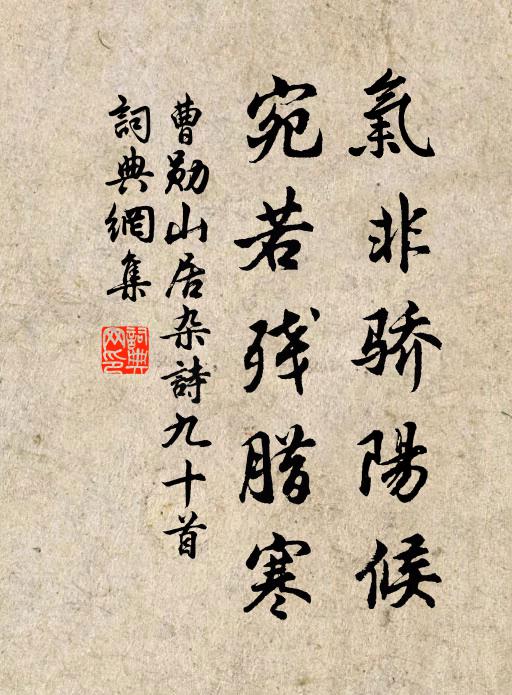 氣非骄陽候
宛若残腊寒
曹勛山居杂詩九十首
詞典網集
詞典網印